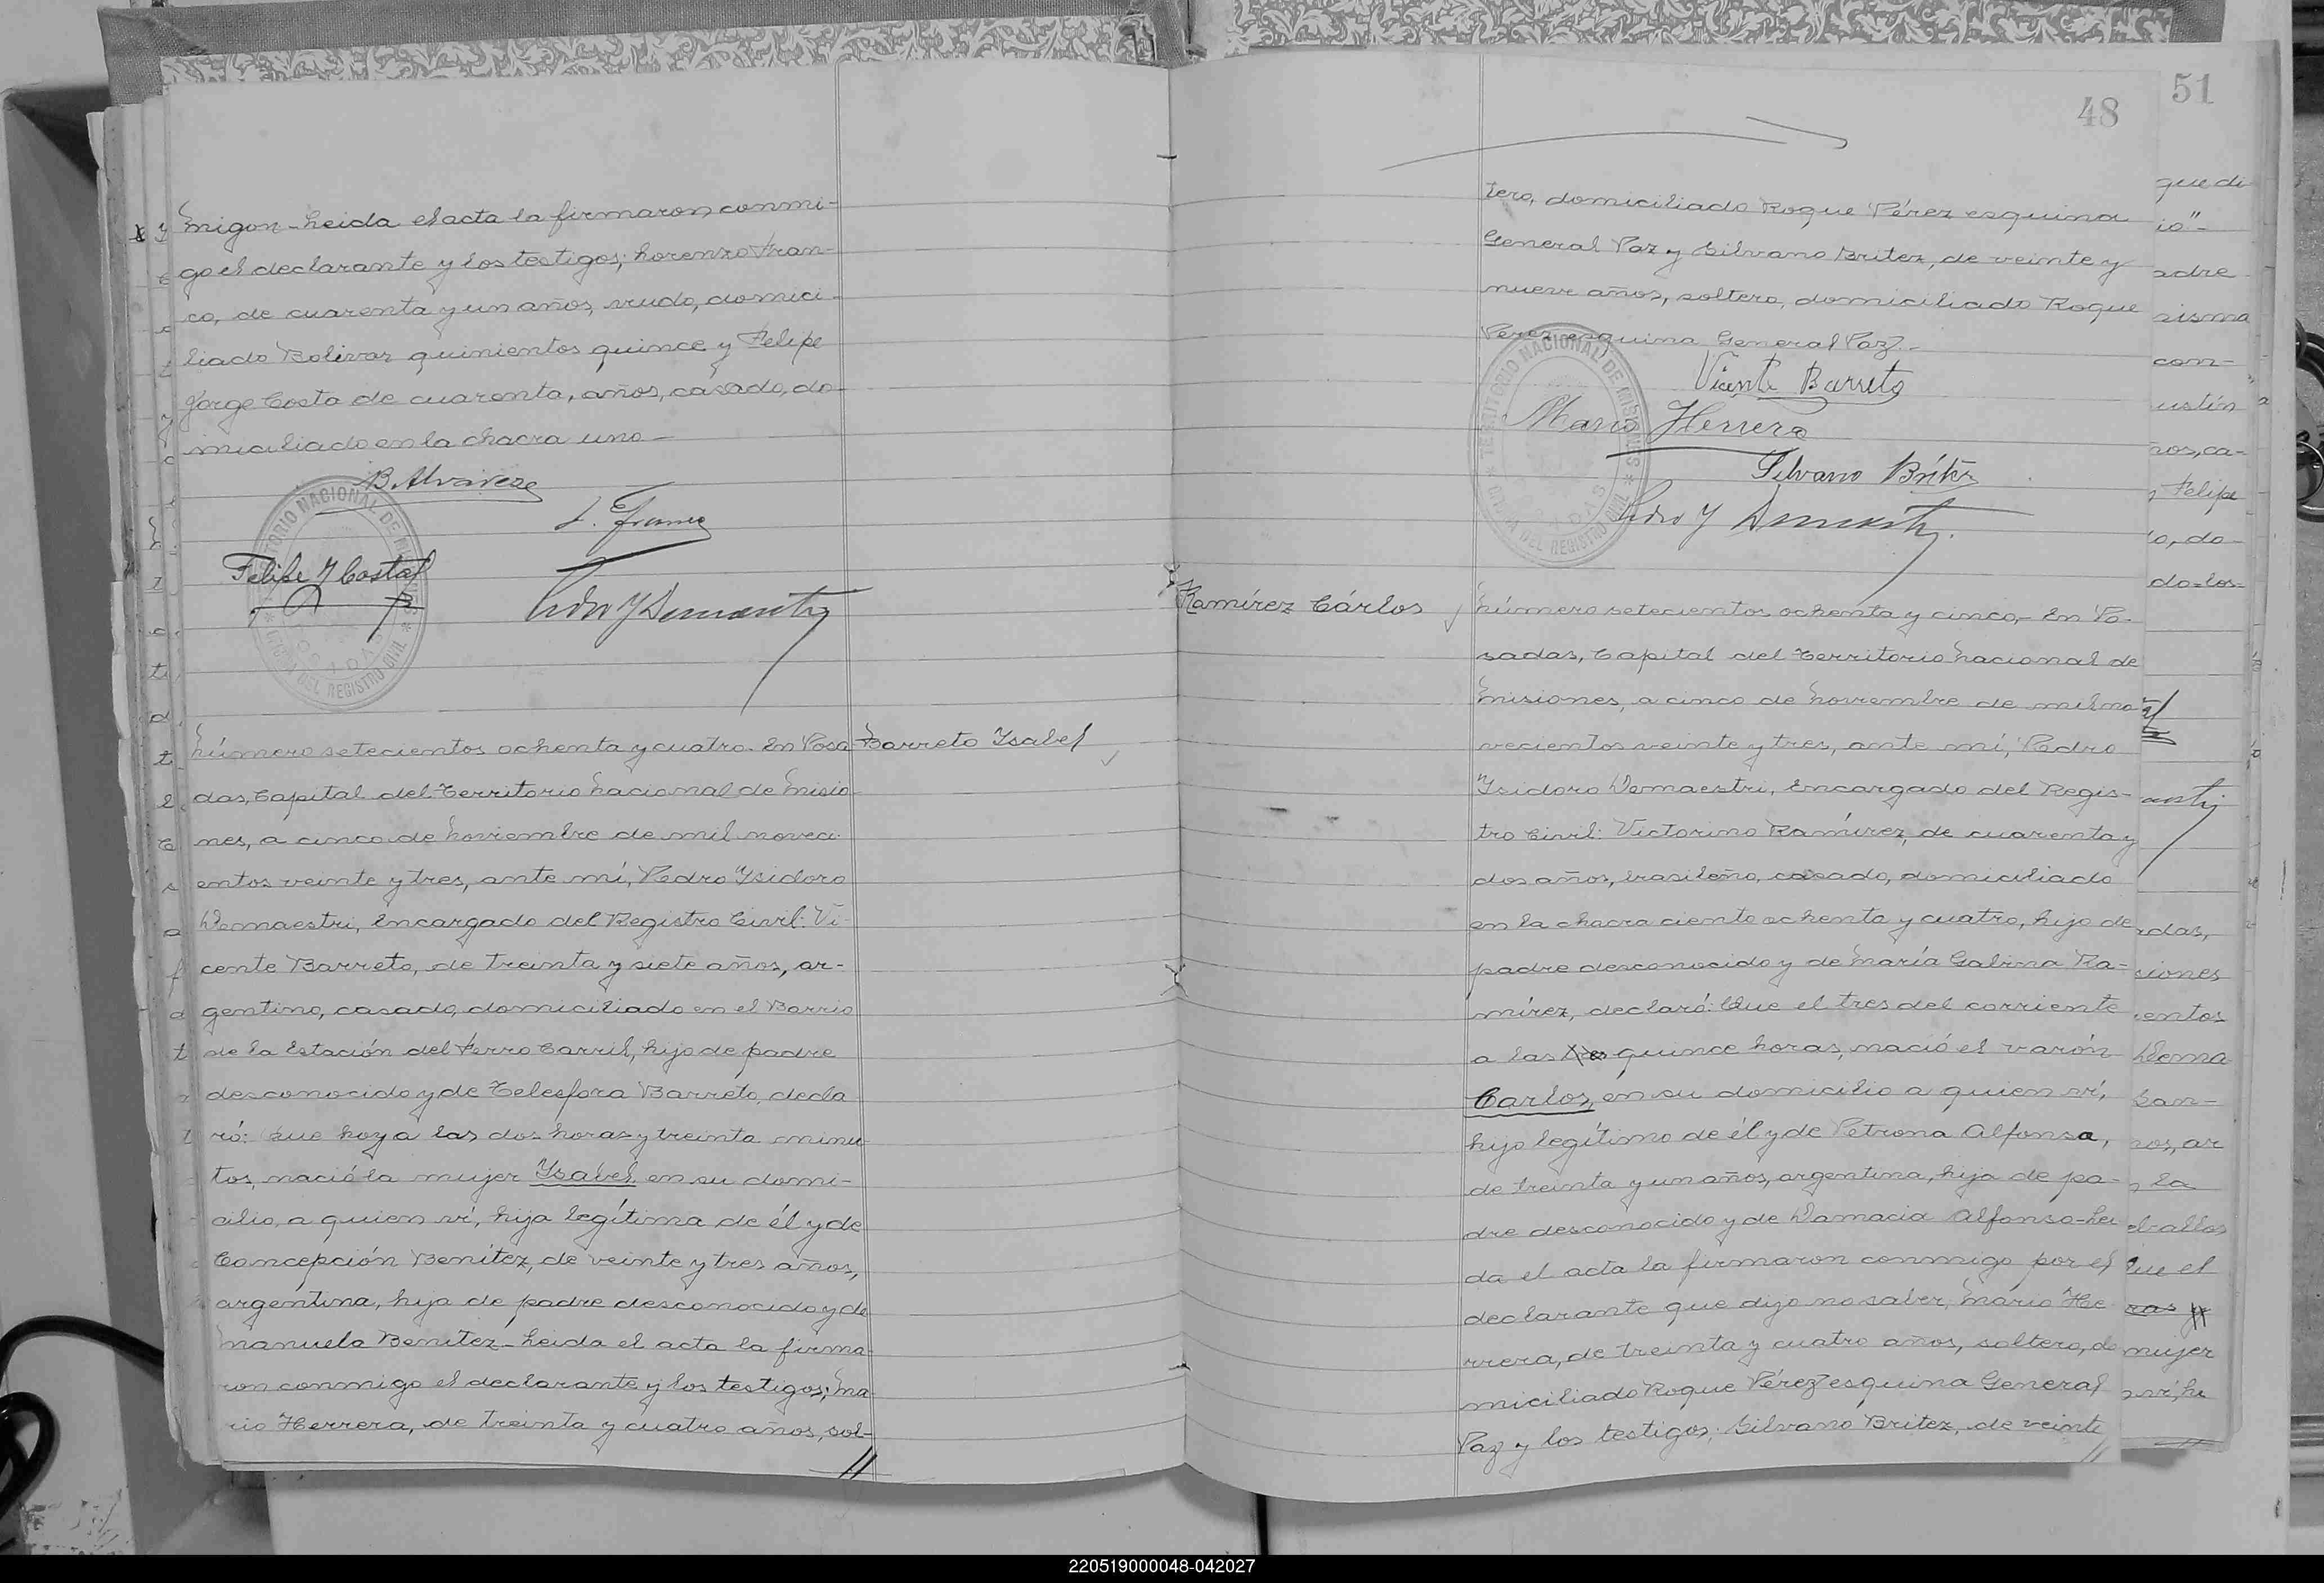 migon - Leida el acta la firmaron conmi-
go el declarante y los testigos; Lorenzo Fran-
co, de cuarenta y un años, viudo, domici-
liado Bolivar quinientos quince y Felipe
Jorge Costa de cuarenta, años, casado, do-
miciliado en la chacra uno -
B. Alvarez
L. Franco
Felipe J Costa
Pedro Y Demaestri
TERRITORIO NACIONAL DE MISIONES
OFICINA DEL REGISTRO CIVIL
POSADAS
Barreto Ysabel
Número setecientos ochenta y cuatro. En Posa-
das, Capital del Territorio Nacional de Misio-
nes, a cinco de Noviembre de mil noveci-
entos veinte y tres, ante mí, Pedro Ysidoro
Demaestri, Encargado del Registro Civil: Vi-
cente Barreto, de treinta y siete años, ar-
gentino, casado, domiciliado en el Barrio
de la Estación del Ferro Carril, hijo de padre
desconocido y de Telesfora Barreto, decla
ró: Que hoy a las dos horas y treinta minu-
tos, nació la mujer Ysabel, en su domi-
cilio, a quien ví, hija legítima de él y de
Concepción Benítez, de veinte y tres años,
argentina, hija de padre desconocido y de
Manuela Benítez - Leida el acta la firma-
ron conmigo el declarante y los testigos; Ma-
rio Herrera, de treinta y cuatro años, sol-
48
51
tero, domiciliado Roque Pérez esquina
General Paz y Silvano Britez, de veinte y
nueve años, soltero, domiciliado Roque
Pérez esquina General Paz.-
Vicente Barreto
Mario Herrera
Silvano Britez
Pedro Y Demaestri
TERRITORIO NACIONAL DE MISIONES
OFICINA DEL REGISTRO CIVIL
POSADAS
Ramírez Cárlos
Número setecientos ochenta y cinco,- En Po-
sadas, Capital del Territorio Nacional de
Misiones, a cinco de Noviembre de mil no-
vecientos veinte y tres, ante mí, Pedro
Ysidoro Demaestri, Encargado del Regis-
tro Civil: Victorino Ramírez, de cuarenta y
dos años, brasileño, casado, domiciliado
en la chacra ciento ochenta y cuatro, hijo de
padre desconocido y de María Galina Ra-
mírez, declaró: Que el tres del corriente
a las tres quince horas, nació el varón
Carlos, en su domicilio a quien ví,
hijo legítimo de él y de Petrona Alfonsa,
de treinta y un años, argentina, hija de pa-
dre desconocido y de Damacia Alfonso - Lei
da el acta la firmaron conmigo por el
declarante que dijo no saber, Mario He-
rrera, de treinta y cuatro años, soltero, do
miciliado Roque Pérez esquina General
Paz y los testigos; Silvano Britez, de veinte
que di
io"-
adre
misma
con-
ustín
ños, ca-
y Felipe
o, do-
do=los=
adas,
ciones
entos
Dema
San-
ños, ar
n la
eballos
Que el
ras y
mujer
ví, hi
220519000048-042027